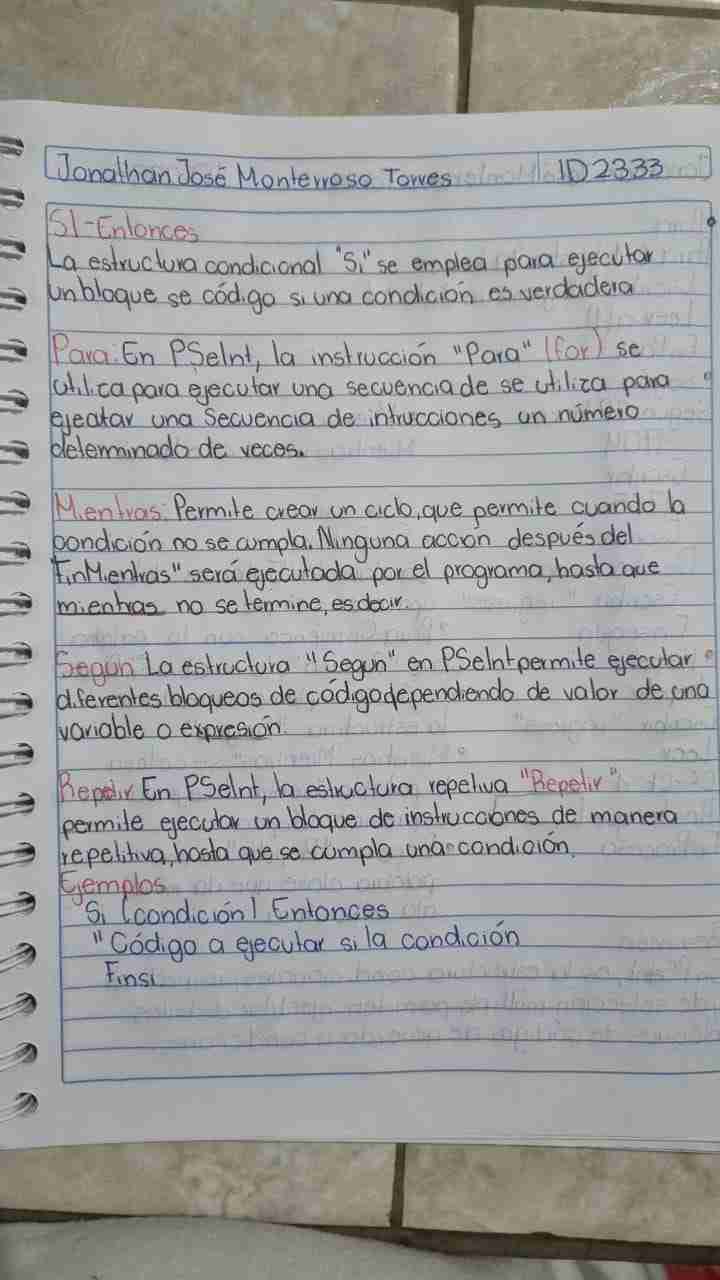 Jonathan José Monterroso Torres ID2333
SI-Entonces
La estructura condicional "Si" se emplea para ejecutar
un bloque se código si una condición es verdadera
Para: En PSeInt, la instrucción "Para" (for) se
utiliza para ejecutar una secuencia de se utiliza para
ejecutar una Secuencia de intrucciones un número
determinado de veces.
Mientras: Permite crear un ciclo, que permite cuando la
condición no se cumpla. Ninguna accion después del
"FinMientras" será ejecutada por el programa, hasta que
mientras no se termine, es decir.
Segun La estructura "Segun" en PSeInt permite ejecutar
diferentes bloqueos de código dependiendo de valor de una
variable o expresión.
Repetir En PSeInt, la estructura repetiva "Repetir"
permite ejecutar un bloque de instrucciones de manera
repetitiva, hasta que se cumpla una condición.
Ejemplos
Si (condición) Entonces
"Código a ejecutar si la condición
Finsi